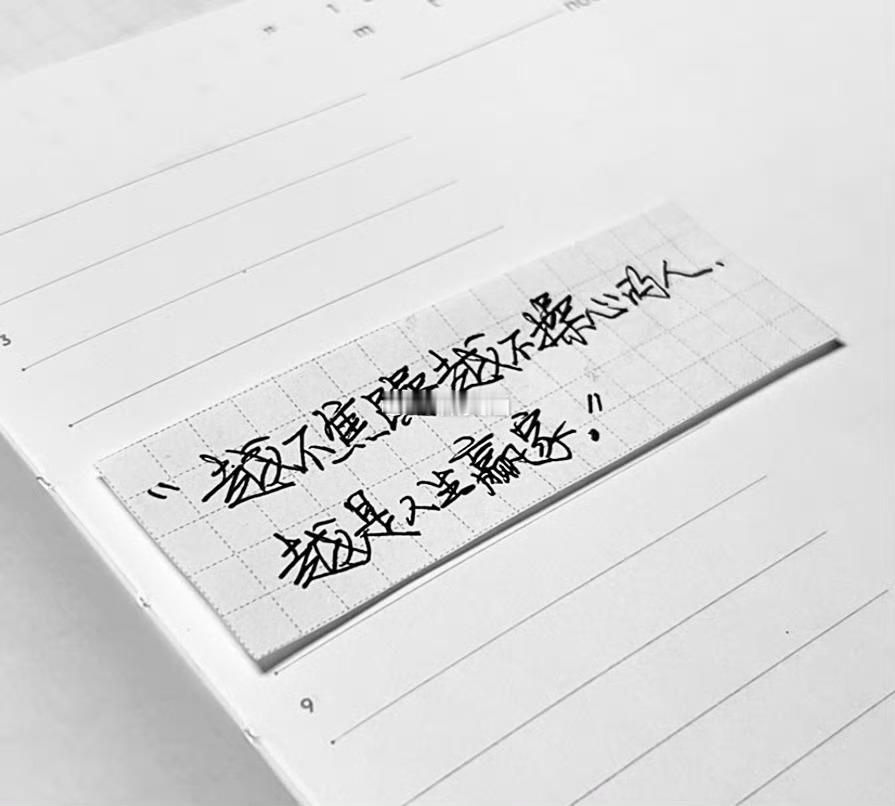 m t no
3
"越不焦躁越不操心的人.
越是人生赢家."
9